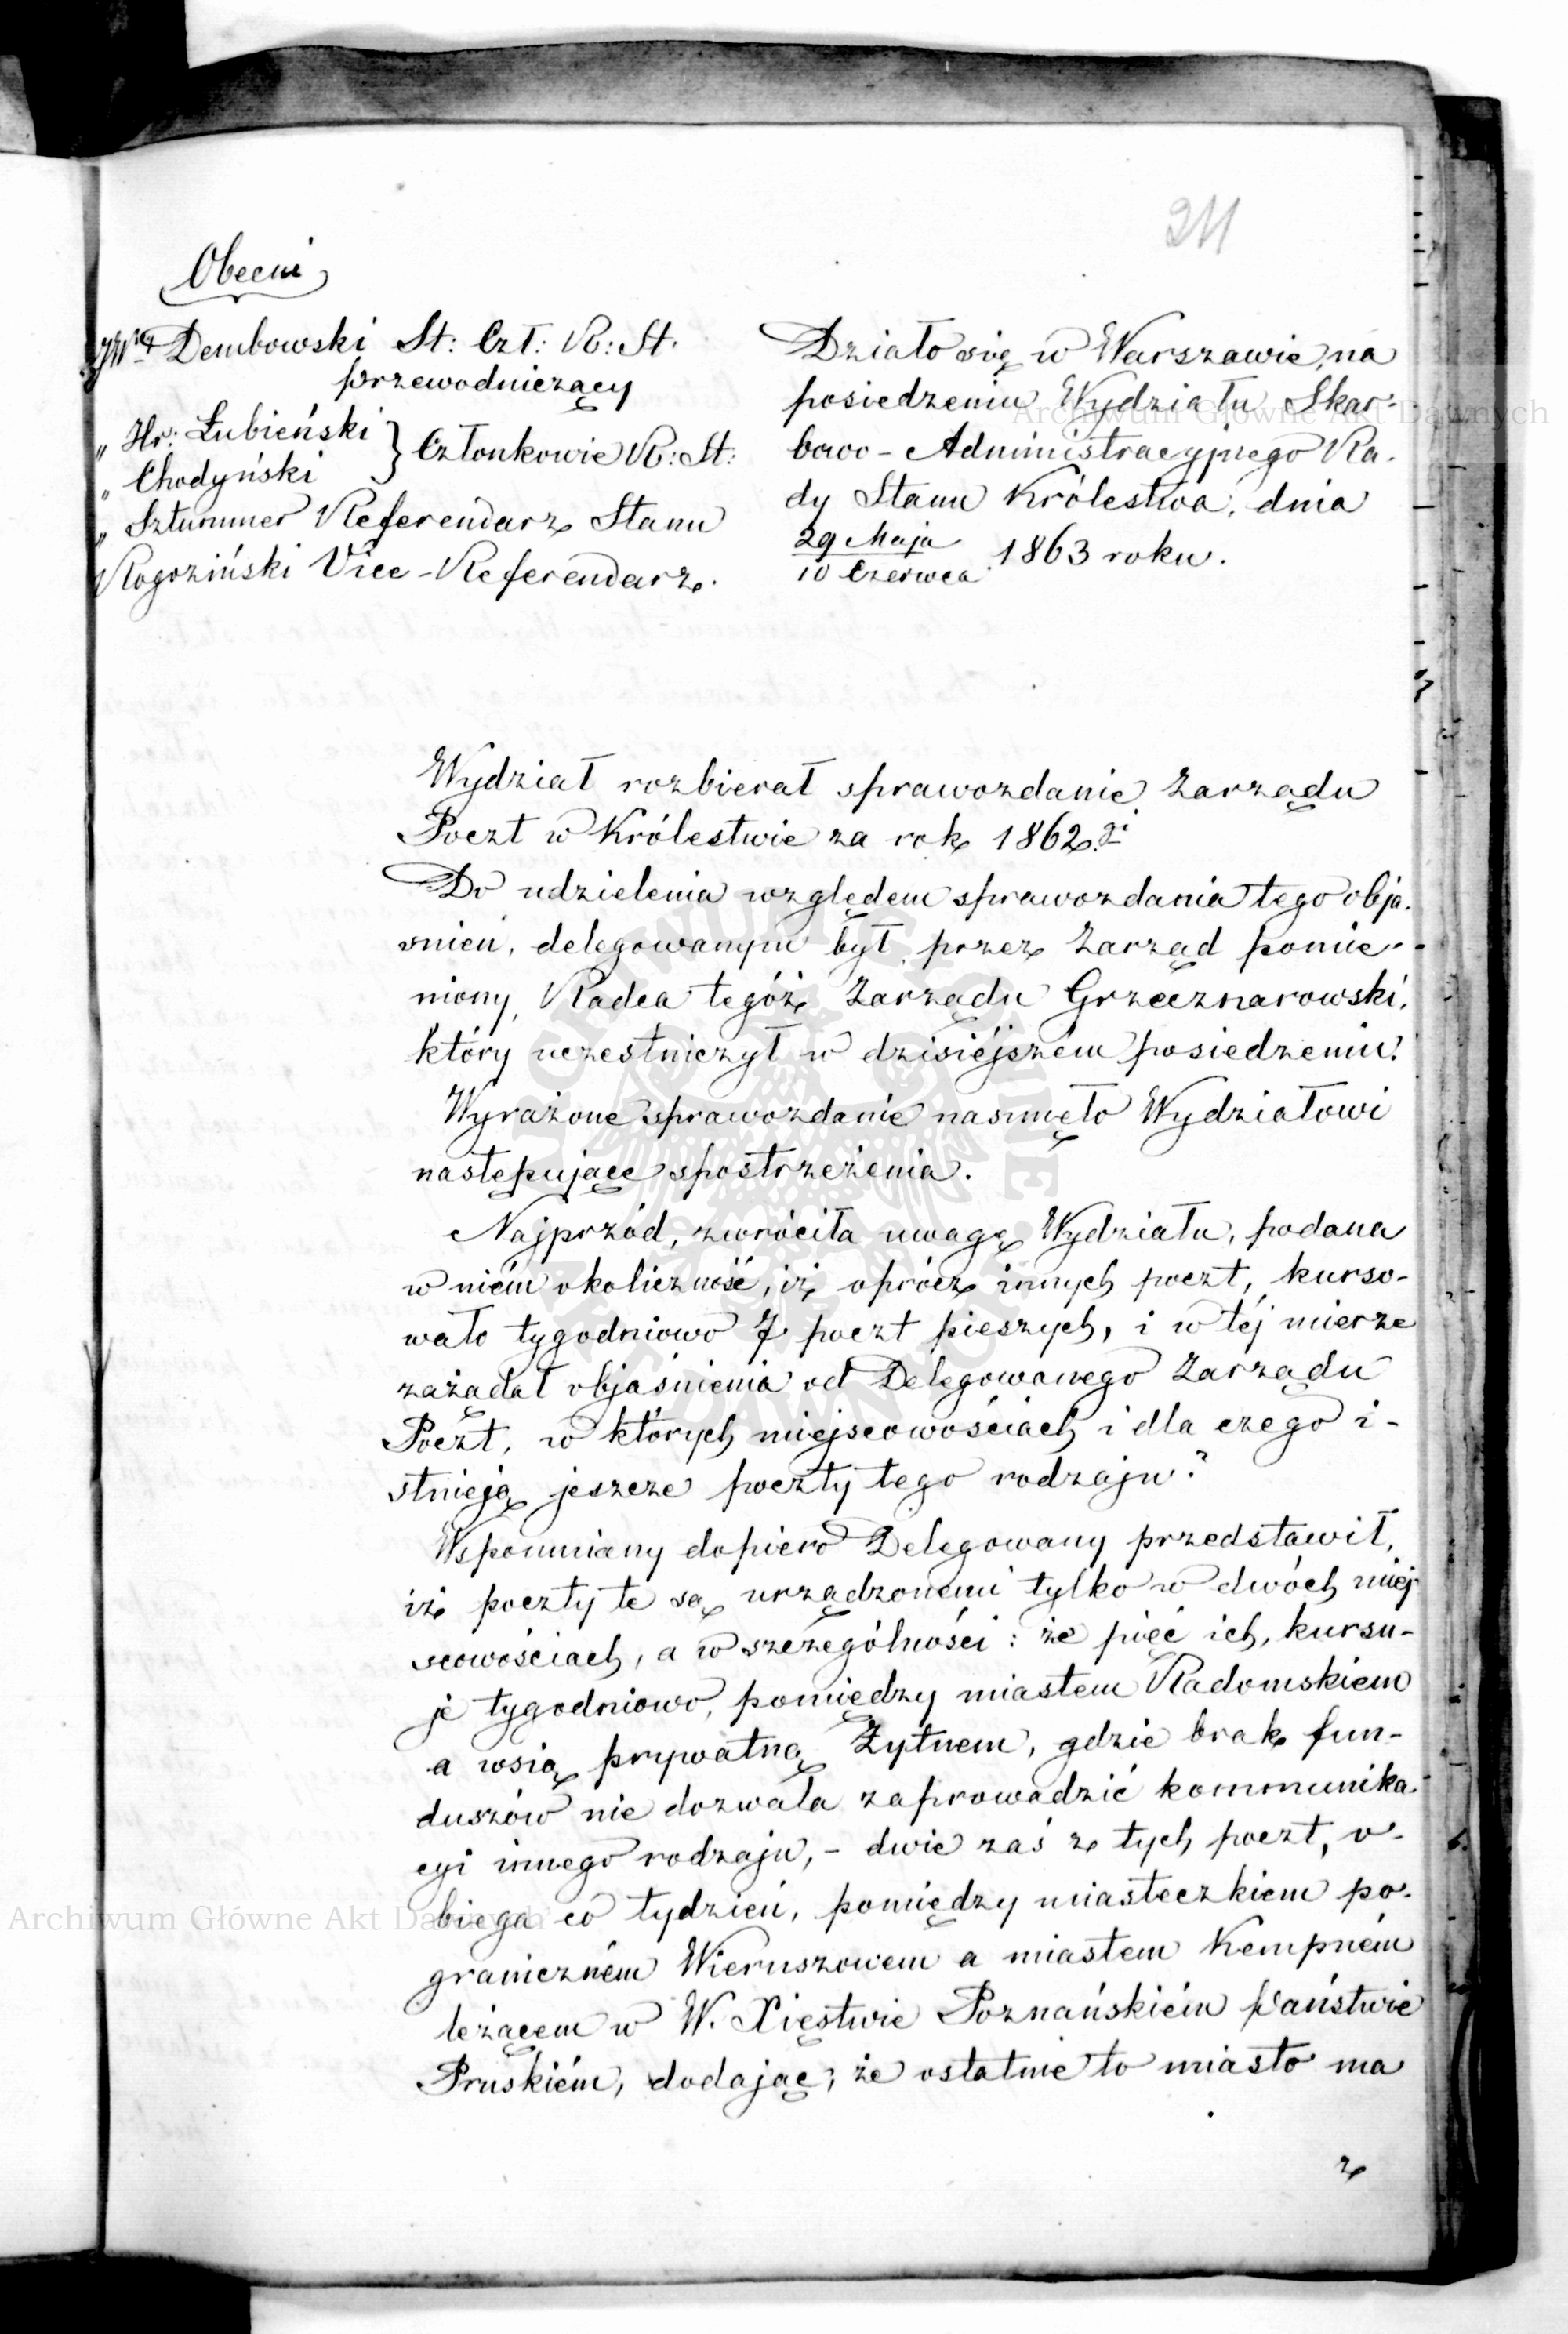 211
Obecni
JWny Dembowski St: Czł: R: St.
przewodniczący
„ Hr: Łubieński } Członkowie R: St:
„ Chodyński
„ Sztummer Referendarz Stanu
Rogoziński Vice-Referendarz.
Działo się w Warszawie, na
posiedzeniu Wydziału Skar-
bowo-Administracyjnego Ra-
dy Stanu Królestwa, dnia
29 Maja
10 Czerwca 1863 roku.
Wydział rozbierał sprawozdanie Zarządu
Poczt w Królestwie za rok 1862gi
Do udzielenia względem sprawozdania tego obja-
śnień, delegowanym był przez Zarząd pomie-
niony, Radca tegóż Zarządu Grzecznarowski,
który uczestniczył w dzisiéjszém posiedzeniu.
Wyrażone sprawozdanie nasunęło Wydziałowi
następujące spostrzeżenia.
Najprzód, zwróciła uwagę Wydziału, podana
w niém okoliczność, iż oprócz innych poczt, kurso-
wało tygodniowo 7 poczt pieszych, i w téj mierze
zażądał objaśnienia od Delegowanego Zarządu
Poczt, w których miejscowościach i dla czego i-
stnieją jeszcze poczty tego rodzaju?
Wspomniany dopiero Delegowany przedstawił,
iż poczty te są urządzonemi tylko w dwóch miej
scowościach, a w szczególności: że pięć ich, kursu-
je tygodniowo, pomiędzy miastem Radomskiem
a wsią prywatną Żytnem, gdzie brak fun-
duszów nie dozwala zaprowadzić kommunika-
cyi innego rodzaju, - dwie zaś z tych poczt, o-
biega co tydzień, pomiędzy miasteczkiem po-
graniczném Wieruszowem a miastem Kempném
leżącem w W. Xięstwie Poznańskiém Państwie
Pruskiém, dodając, że ostatnie to miasto ma
z
Archiwum Główne Akt Dawnych
Archiwum Główne Akt Dawnych
ARCHIWUM GŁÓWNE AKT DAWNYCH